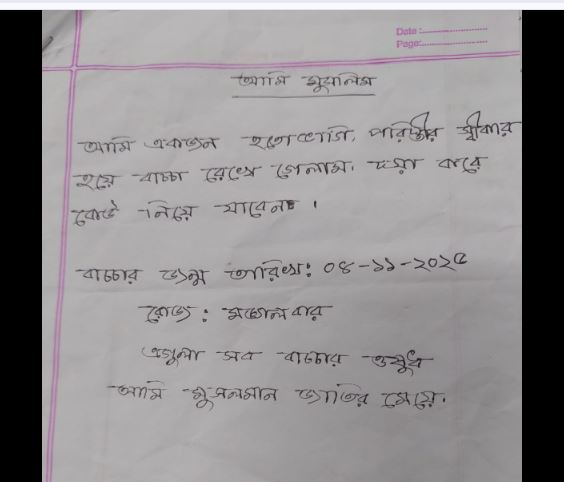 Date :
Page:
আমি মুসলিম
আমি একজন হতোভাগি, পরিস্তীর স্বীকার
হয়ে বাচ্চা রেখে গেলাম, দয়া করে
কেউ নিয়ে যাবেন ।
বাচ্চার জন্ম তারিখ: ০৪-১১-২০২৫
রোজ : মঙ্গলবার
এগুলা সব বাচ্চার ওষুধ
আমি মুসলমান জাতির মেয়ে।